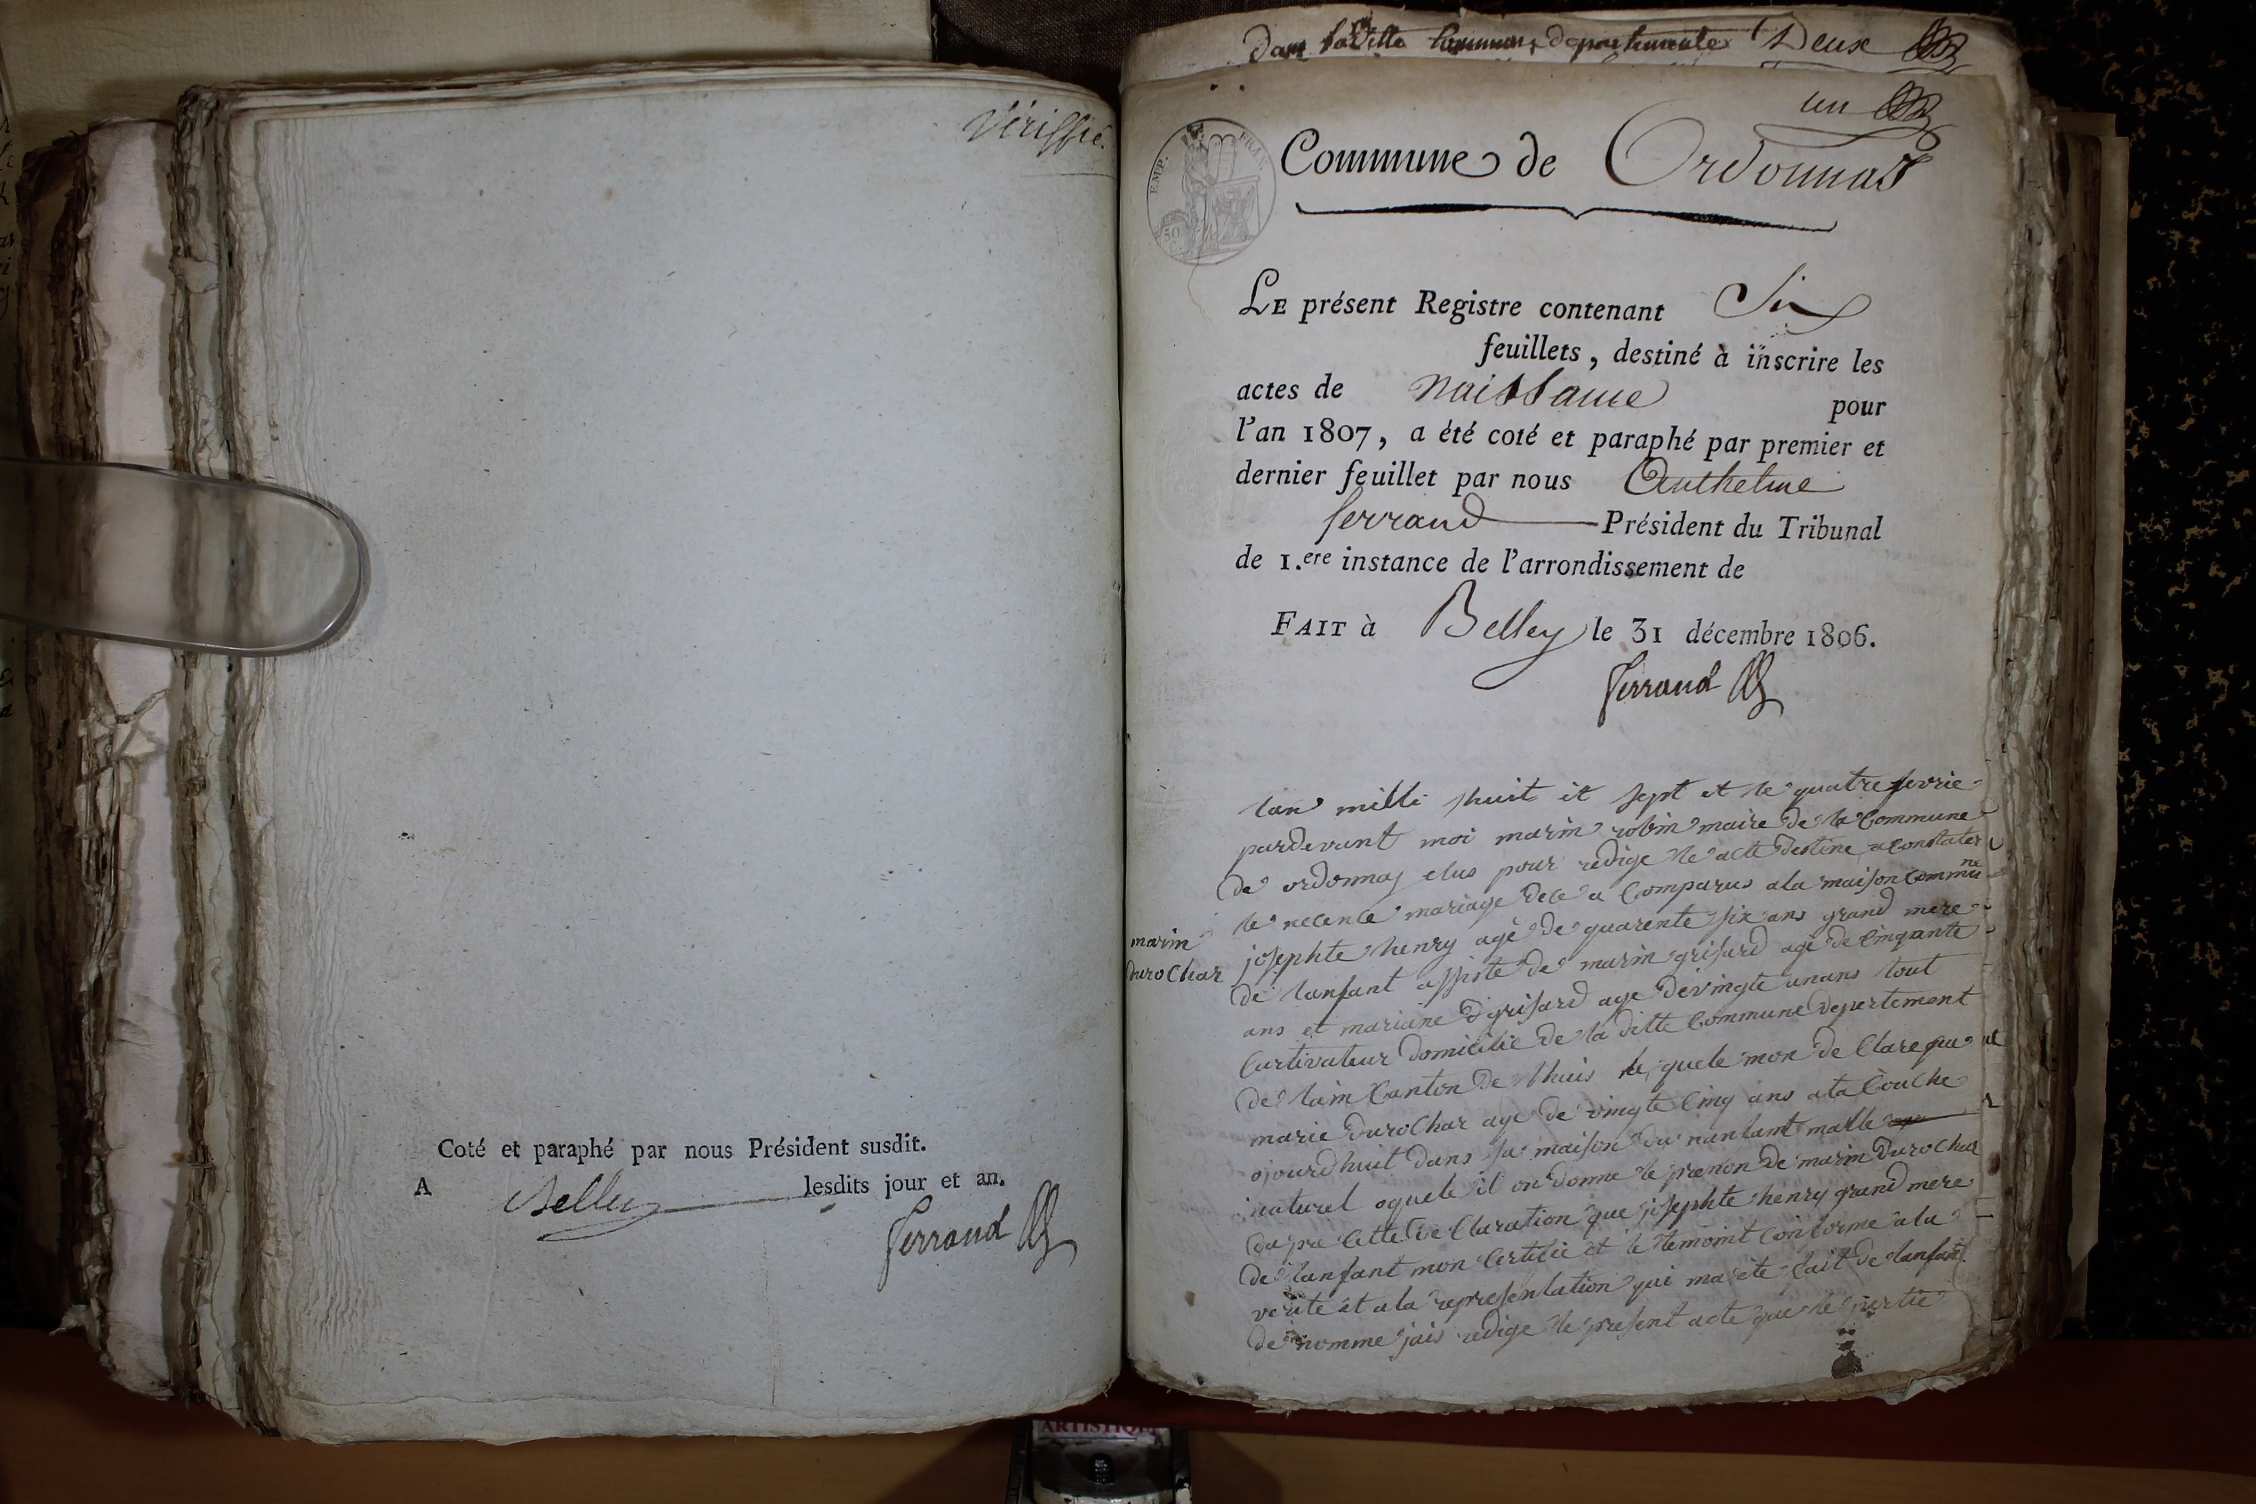 Vériffié.
Coté et paraphé par nous Président susdit.
A Belley lesdits jour et an.
Ferrand
Dans laditte Commune departemente Deux
un
EMP. FRAN.
50
Commune de Ordonnas
LE présent Registre contenant Six
feuillets, destiné à inscrire les
actes de naissance pour
l'an 1807, a été coté et paraphé par premier et
dernier feuillet par nous Anthelme
ferrand Président du Tribunal
de 1.ere instance de l'arrondissement de
FAIT à Belley le 31 décembre 1806.
Ferrand
marin
duroChar
lan mille huit it sept et le quatre fevrie
pardevant moi marin robin maire de la Commune
de ordonnas elus pour redige le acte destine a Constater
le necence mariage dece a Comparus ala maison Commu
ne
josephte henry agè de quarente six ans grand mere
de lanfant assiste de marin grisard age de Cinqante
ans et mariane grisard age de vingte unans tout
Curtivateur domicilie de la ditte Commune departement
de lain Canton de lhuis le quele mon de Clare que
marie duroChar age de vingte Cinq ans ata Couche
ojourdhuit dans sa maison du nanfant malle
naturel oquele il on donne le prenon de marin duroChar
da pre Cette de Claration que josephte henry grand mere
de lanfant mon Certifie et le temoint Conforme ala
verite et ala representation qui ma ete fait de lanfant
de nomme jais redige le present acte que le partie
ARTISTIQUE